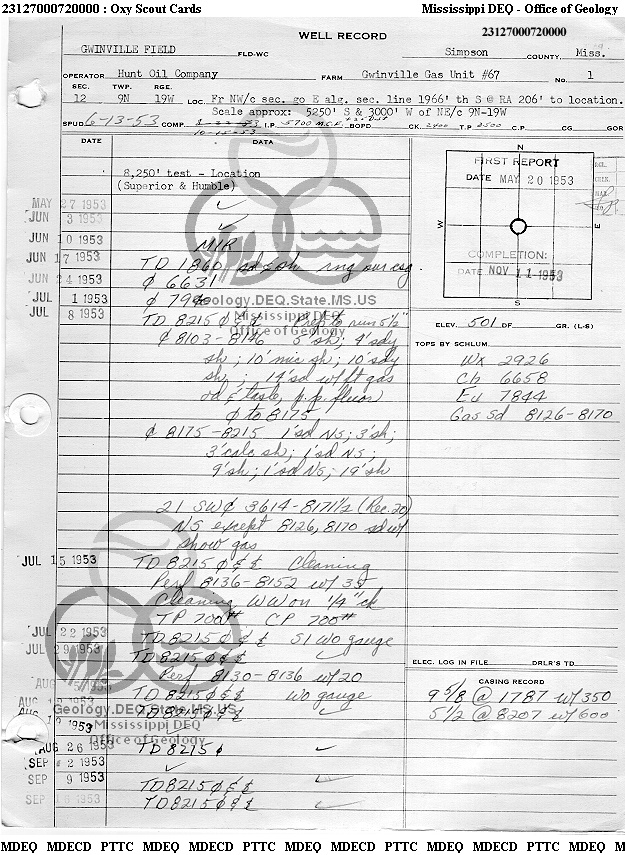 23127000720000 : Oxy Scout Cards Mississippi DEQ - Office of Geology
23127000720000
WELL RECORD
GWINVILLE FIELD FLD-WC Simpson COUNTY, Miss.
OPERATOR Hunt Oil Company FARM Gwinville Gas Unit #67 No. 1
SEC. TWP. RGE.
12 9N 19W LOC. Fr NW/c sec. go E alg. sec. line 1966' th S @ RA 206' to location.
Scale approx: 5250' S & 3000' W of NE/c 9N-19W
SPUD 6-13-53 COMP. I.P. 5700 M.C.F. BOPD CK. T.P. 2500 C.P. CG. GOR
10-15-53
DATE DATA
FIRST REPORT
DATE MAY 20 1953
N
W
E
S
COMPLETION:
DATE NOV 11 1953
8,250' test - Location
(Superior & Humble)
MAY 27 1953
JUN 3 1953
JUN 10 1953 MIR
JUN 17 1953 TD 1860 sd & sh rng sur csg.
JUN 24 1953 ¢ 6631
JUL 1 1953
Geology.DEQ.State.MS.US
Mississippi DEQ
Office of Geology
JUL 8 1953 TD 8215 ¢ & ¢ Prep to run 5½"
¢ 8103-8146 5' sh; 4' sdy
sh; 10' mic sh; 10' sdy
sh; 14' sd w/ ft gas
od & taste, p.p. fluor
¢ to 8175
¢ 8175-8215 1' sd NS; 3' sh;
3' calc sh; 1' sd NS;
9' sh; 1' sd NS; 19' sh
21 SW¢ 3614-8171½ (Rec. 20)
NS except 8126, 8170 sd w/
show gas
ELEV. 501 DF GR. (L-S)
TOPS BY SCHLUM.
Wx 2926
Ch 6658
Eu 7844
Gas Sd 8126-8170
JUL 15 1953 TD 8215 ¢ & ¢ Cleaning
Perf 8136-8152 w/ 35
Cleaning WW on 1/4" ck
TP 700# CP 700#
JUL 22 1953 TD 8215 ¢ & ¢ SI WO gauge
JUL 29 1953 TD 8215 ¢ & ¢
Perf 8130-8136 w/ 20
AUG 1953 TD 8215 ¢ & ¢ WO gauge
AUG 1953 TD 8215 ¢ & ¢
AUG 1953
Geology.DEQ.State.MS.US
Mississippi DEQ
Office of Geology
AUG 26 1953 TD 8215 ¢
SEP 2 1953
SEP 9 1953 TD 8215 ¢ & ¢
SEP 1953 TD 8215 ¢ & ¢
ELEC. LOG IN FILE DRLR'S TD
CASING RECORD
9 5/8 @ 1787 w/ 350
5 1/2 @ 8207 w/ 600
MDEQ MDECD PTTC MDEQ MDECD PTTC MDEQ MDECD PTTC MDEQ MDECD PTTC MDEQ M